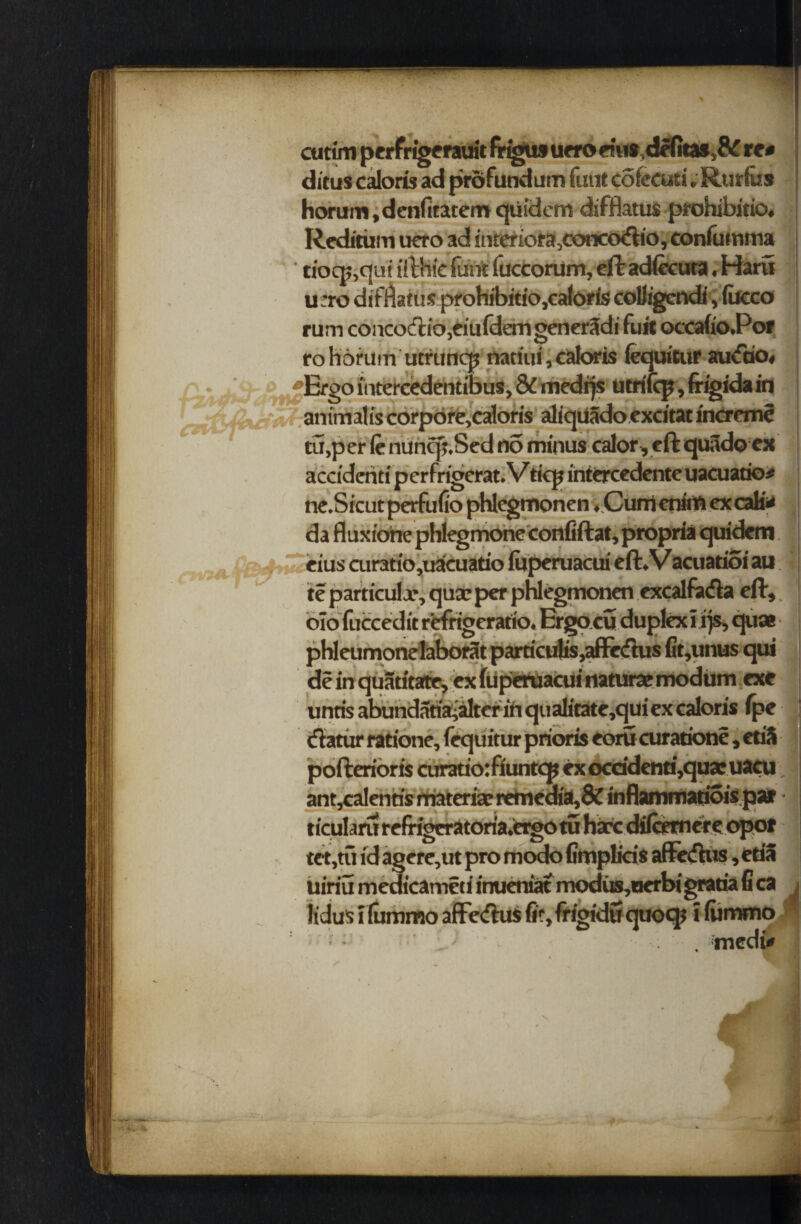 cutim perfrigerauit frigus uero eius, dēsitas, & re⸗
ditus caloris ad profundum sunt cōsecuti. Rursus
horum, densitatem quidem difflatus prohibitio.
Reditum uero ad interiora, concoctio, consumma
tioqꝫ, qui illhic sunt succorum, est adsecuta. Harū
uero difflatus prohibitio, caloris colligendi, succo
rum concoctio, eiusdem generādi fuit occasio. Por
ro horum utrunqꝫ natiui, caloris sequitur auctio.
Ergo intercedentibus, & medijs utrisqꝫ, frigida in
animalis corpore, caloris aliquādo excitat incremē
tū, per se nunqꝫ. Sed nō minus calor, est quādo ex
accidenti perfrigerat. Vtiqꝫ intercedente uacuatio⸗
ne. Sicut perfusio phlegmonen. Cum enim ex cali⸗
da fluxione phlegmone consistat, propria quidem
eius curatio, uacuatio superuacui est. Vacuatiōi au
tē particulæ, quæ per phlegmonen excalfacta est,
oīo succedit refrigeratio. Ergo cū duplex ī ijs, quæ
phleumone laborāt particulis, affectus sit, unus qui
dē in quātitate, ex superuacui naturæ modum exe
untis abundātia, alter in qualitate, qui ex caloris spe
ctatur ratione, sequitur prioris eorū curationē, etiā
posterioris curatio: fiuntqꝫ ex occidenti, quæ uacu
ant, calentis materiæ remedia, & inflammatiōis par
ticularū refrigeratoria. ergo tū hæc discernere opor
tet, tū id agere, ut pro modo simplicis affectus, etiā
uiriū medicamēti inueniat modus, uerbi gratia si ca
lidus ī summo affectus sit, frigidū quoqꝫ ī summo
medi⸗